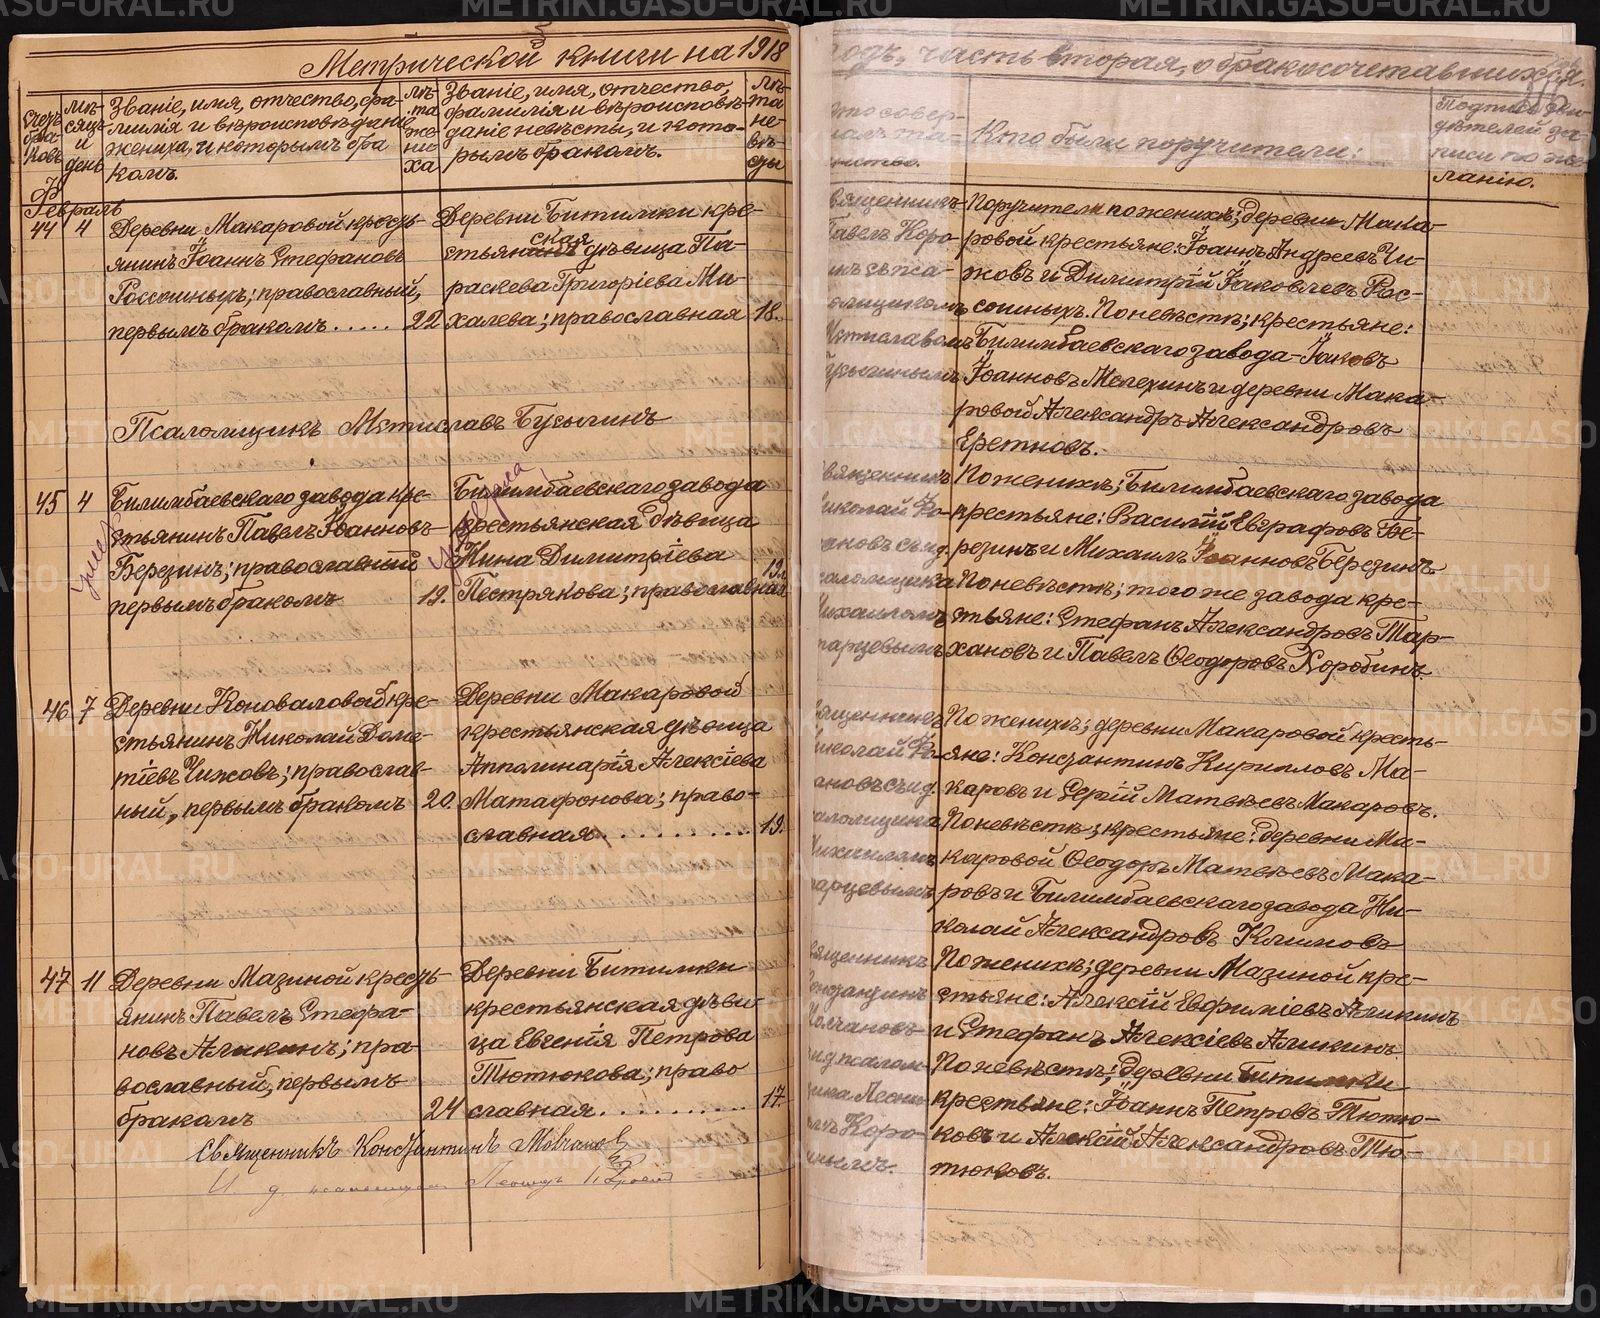 Метрической книги на 1918
Счетъ браковъ
Мѣсяцъ и день
Званіе, имя, отчество, фа-
милія и вѣроисповѣданіе
жениха, и которымъ бра
комъ.
Лѣта жениха
Званіе, имя, отчество,
фамилія и вѣроисповѣ-
даніе невѣсты, и кото-
рымъ бракомъ.
Лѣта невѣсты
Февраль
44 4 Деревни Макаровой кресть-
янинъ Іоаннъ Стефановъ
Россошныхъ; православный,
первымъ бракомъ..... 22
Деревни Битимки кре-
ская
стьянинъ дѣвица Па-
раскева Григоріева Ми-
халева; православная 18.
Псаломщикъ Мстиславъ Бусыгинъ
45 4 Билимбаевскаго завода кре-
стьянинъ Павелъ Іоанновъ
Березинъ; православный
первымъ бракомъ 19.
Билимбаевскаго завода
крестьянская дѣвица
Нина Димитріева 19.
Пестрякова; православная
умеръ
умерла
46 7 Деревни Коноваловой кре-
стьянинъ Николай Доме-
тіевъ Чижовъ; православ-
ный, первымъ бракомъ 20.
Деревни Макаровой
крестьянская дѣвица
Апполинарія Алексіева
Матафонова; право-
славная.......... 19.
47 11 Деревни Мазиной кресть-
янинъ Павелъ Стефа-
новъ Аликинъ; пра-
вославный, первымъ
бракомъ 24
Деревни Битимки
крестьянская дѣви-
ца Евгенія Петрова
Тютюкова; право
славная.......... 17.
Священникъ Константинъ Молчановъ
И. д. псаломщика Леонидъ
годъ, часть вторая, о бракосочетавшихся.
Кто совер-
шалъ та-
инство.
Кто были поручители:
Подписи сви-
дѣтелей за-
писи по же-
ланію.
Священникъ
Павелъ Коро-
инъ съ пса-
ломщикомъ
Мстиславомъ
Бусыгинымъ
Поручители по женихѣ; деревни Мака-
ровой крестьяне: Іоаннъ Андреевъ Чи-
жовъ и Димитрій Іаковлевъ Рос-
сошныхъ. По невѣстѣ; крестьяне:
Билимбаевскаго завода - Іаковъ
Іоанновъ Мелехинъ и деревни Мака-
ровой Александръ Александровъ
Еретновъ.
Священникъ
Николай Ко-
ановъ съ и.д.
псаломщика
Михаиломъ
Старцевымъ
По женихѣ; Билимбаевскаго завода
крестьяне: Василій Евграфовъ Бе-
резинъ и Михаилъ Іоанновъ Березинъ
По невѣстѣ; того же завода кре-
стьяне: Стефанъ Александровъ Тар-
хановъ и Павелъ Ѳеодоровъ Хоробинъ.
Священникъ
Николай Ко-
ановъ съ и.д.
псаломщика
Михаиломъ
Старцевымъ
По женихѣ; деревни Макаровой кресть-
яне: Константинъ Кирилловъ Ма-
каровъ и Сергій Матвѣевъ Макаровъ.
По невѣстѣ; крестьяне: деревни Ма-
каровой Ѳеодоръ Матвѣевъ Мака-
ровъ и Билимбаевскаго завода Ни-
колай Александровъ Климовъ
Священникъ
Константинъ
Молчановъ
и.д. псалом-
щика Леони-
домъ Коро-
инымъ.
По женихѣ; деревни Мазиной кре-
стьяне: Алексій Евфиміевъ Аликинъ
и Стефанъ Алексіевъ Аликинъ.
По невѣстѣ; деревни Битимки
крестьяне: Іоаннъ Петровъ Тютю-
ковъ и Алексій Александровъ Тю-
тюковъ.
METRIKI.GASO-URAL.RU